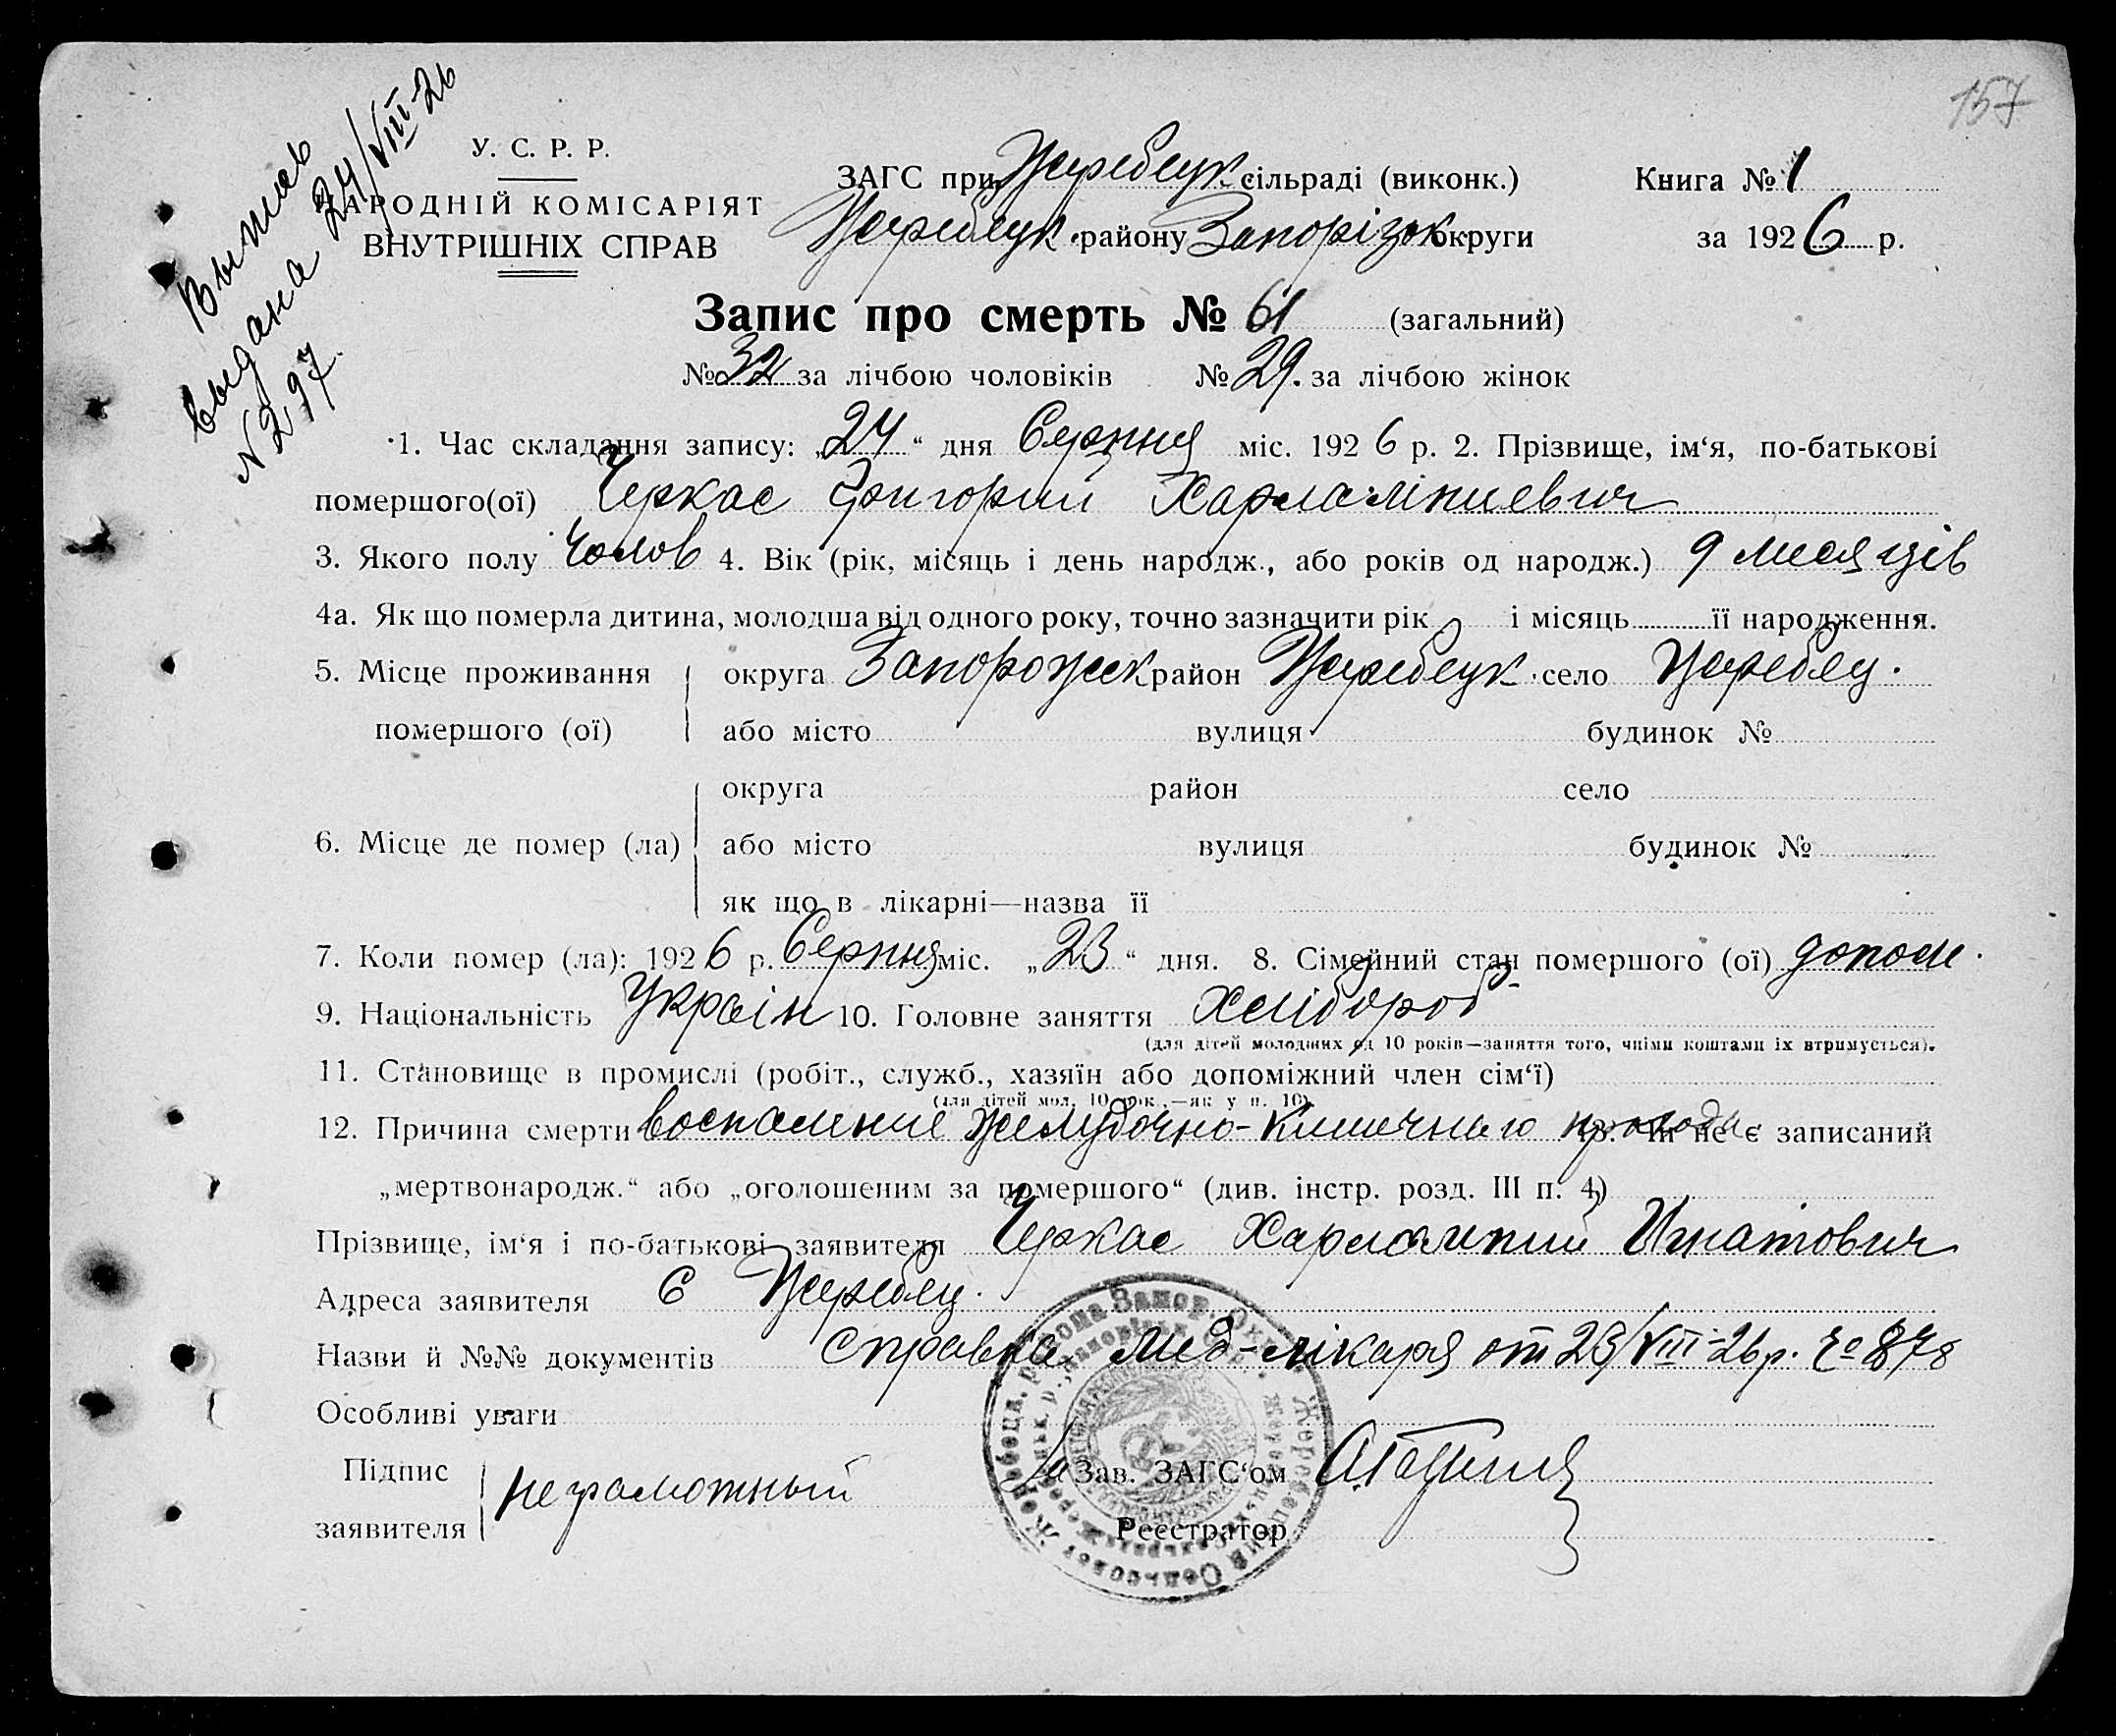 157
Выпись
выдана 24/VIII-26
N 297.
У. С. Р. Р.
НАРОДНІЙ КОМІСАРІЯТ
ВНУТРІШНІХ СПРАВ
ЗАГС при Жеребецк. сільраді (виконк.)
Жеребецк. району Запорізьк округи
Книга № 1
за 1926 р.
Запис про смерть № 61 (загальний)
№ 32 за лічбою чоловіків № 29. за лічбою жінок
1. Час складання запису: „24“ дня Серпня міс. 1926 р. 2. Прізвище, ім‘я, по-батькові
помершого(ої) Черкас Григорий Харлампиевич
3. Якого полу Чолов 4. Вік (рік, місяць і день народж., або років од народж.) 9 месяців
4а. Як що померла дитина, молодша від одного року, точно зазначити рік і місяць її народження.
5. Місце проживання округа Запорожск район Жеребецк. село Жеребец.
помершого (ої) або місто вулиця будинок №
округа район село
6. Місце де помер (ла) або місто вулиця будинок №
як що в лікарні—назва її
7. Коли помер (ла): 1926 р. Серпня міс. „23“ дня. 8. Сімейний стан помершого (ої) допом.
9. Національність Україн 10. Головне заняття Хлібороб
(для дітей молодших од 10 років—заняття того, чиїми коштами їх втримується).
11. Становище в промислі (робіт., служб., хазяїн або допоміжний член сім‘ї)
(для дітей мол. 10 рок.,—як у п. 10).
12. Причина смерти воспаление желудочно-кишечнаго прохода 13. Чи не є записаний
„мертвонародж.“ або „оголошеним за помершого“ (див. інстр. розд. III п. 4)
Прізвище, ім‘я і по-батькові заявителя Черкас Харлампий Игнатович
Адреса заявителя С Жеребец.
Назви й №№ документів справка мед-лікаря от 23/VIII-26р. за 878
Особливі уваги
Підпис
заявителя
неграмотный
За Зав. ЗАГС‘ом
Реєстратор